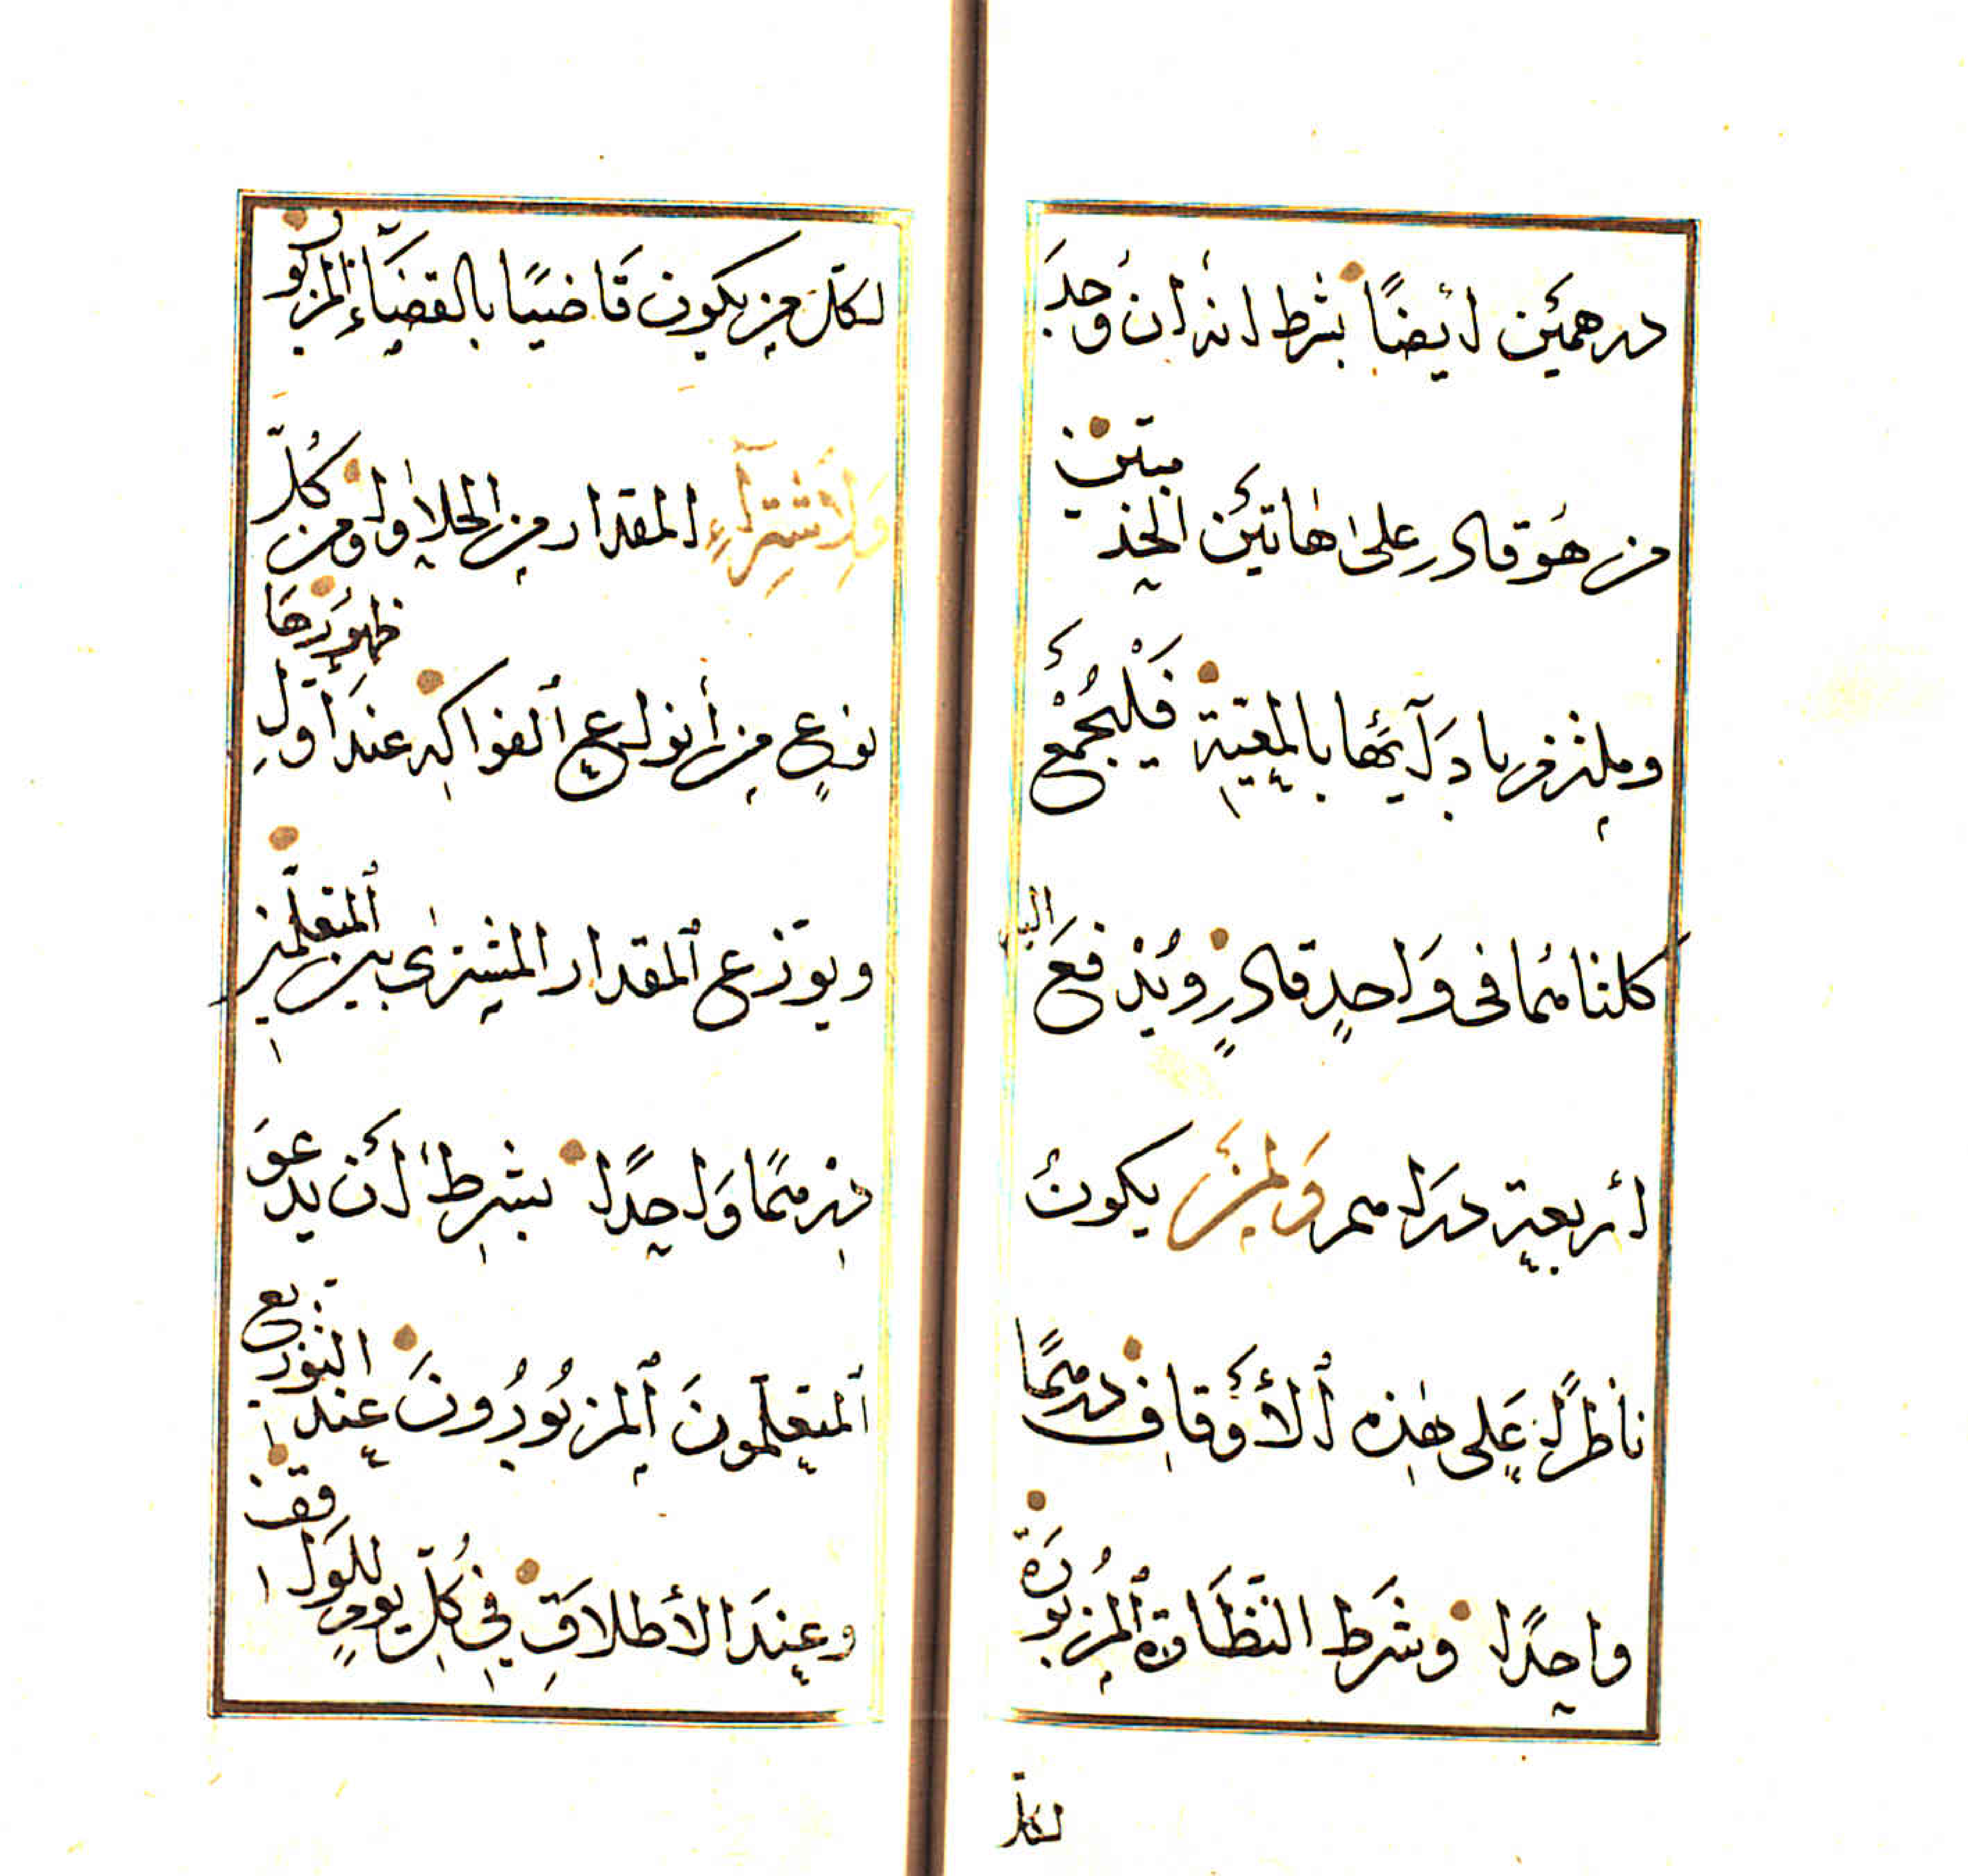 درهمين ايضًا بشرط انه ان وجد
من هو قادر على هاتين الخدمتين
وملتزم بادآئها بالمعيّة فليجمع
كلتاهما فى واحدٍ قادرٍ ويدفع اليه
اربعة دراهم ولمن يكون
ناظرًا على هذه الأوقاف درهمًا
واحدًا وشرط النظارة المزبورة
لكل
لكلّ من يكون قاضيًا بالقضاء المزبور
ولاشترآء المقدار من الحلاوا ومن كلّ
نوعٍ من أنواع الفواكه عند اوّلِ ظهورها
ويوزع المقدار المشترى بين المتعلّمين
درهمًا واحدًا بشرط أن يدعو
المتعلّمون المزبورون عند التوزيع
وعند الأطلاق في كلّ يومٍ للواقف